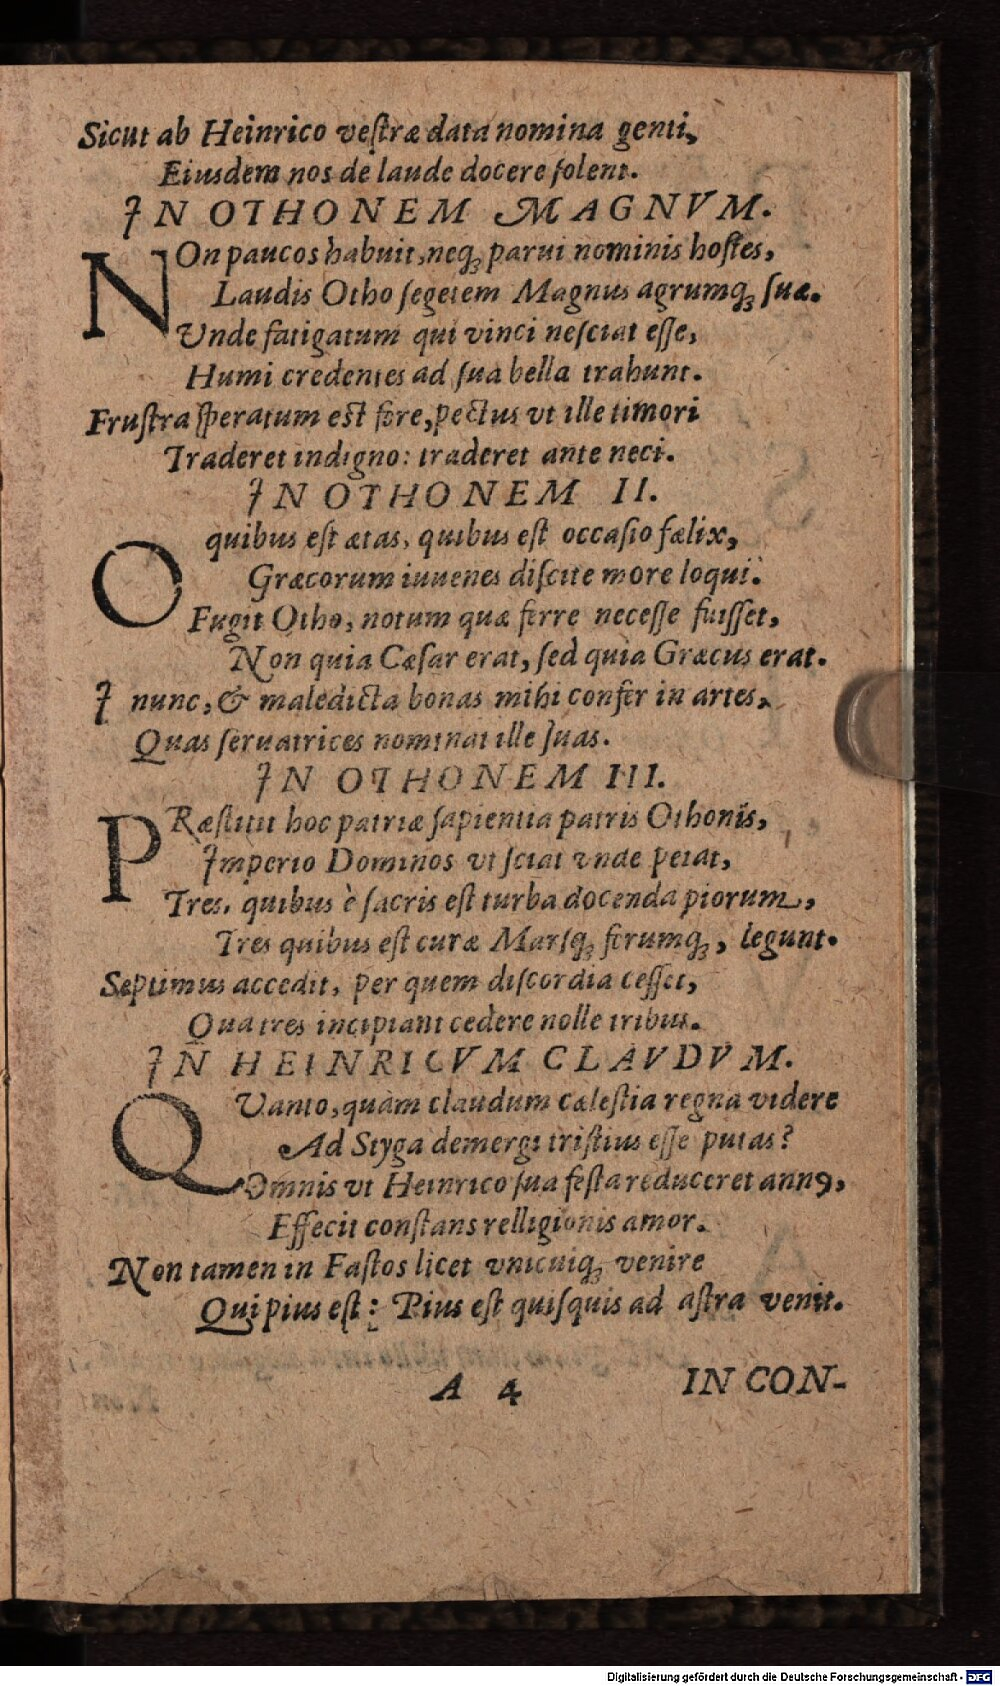 Sicut ab Heinrico veſtræ data nomina genti,
Eiusdem nos de laude docere ſolent.
IN OTHONEM MAGNVM.
NOn paucos habuit, neq; parui nominis hoſtes,
Laudis Otho ſegetem Magnus agrumq; ſuæ.
Unde fatigatum qui vinci neſciat eſſe,
Humi credentes ad ſua bella trahunt.
Fruſtra ſperatum eſt fore, pectus vt ille timori
Traderet indigno: traderet ante neci.
IN OTHONEM II.
O quibus eſt ætas, quibus eſt occaſio fælix,
Græcorum iuuenes diſcite more loqui.
Fugit Otho, notum quæ ferre neceſſe fuiſſet,
Non quia Cæſar erat, ſed quia Græcus erat.
I nunc, & maledicta bonas mihi confer in artes,
Quas ſeruatrices nominat ille ſuas.
IN OTHONEM III.
PRæſtitit hoc patriæ ſapientia patris Othonis,
Imperio Dominos vt ſciat vnde petat,
Tres, quibus è ſacris eſt turba docenda piorum,
Tres quibus eſt curæ Marſq; ferumq;, legunt.
Septimus accedit, per quem diſcordia ceſſet,
Qua tres incipiant cedere nolle tribus.
IN HEINRICVM CLAVDVM.
QVanto, quàm claudum cæleſtia regna videre
Ad Styga demergi triſtius eſſe putas?
Omnis vt Heinrico ſua feſta reduceret annꝰ,
Effecit conſtans relligionis amor.
Non tamen in Faſtos licet vnicuiq; venire
Qui pius eſt: Pius eſt quiſquis ad aſtra venit.
A 4 IN CON-
Digitalisierung gefördert durch die Deutsche Forschungsgemeinschaft - DFG